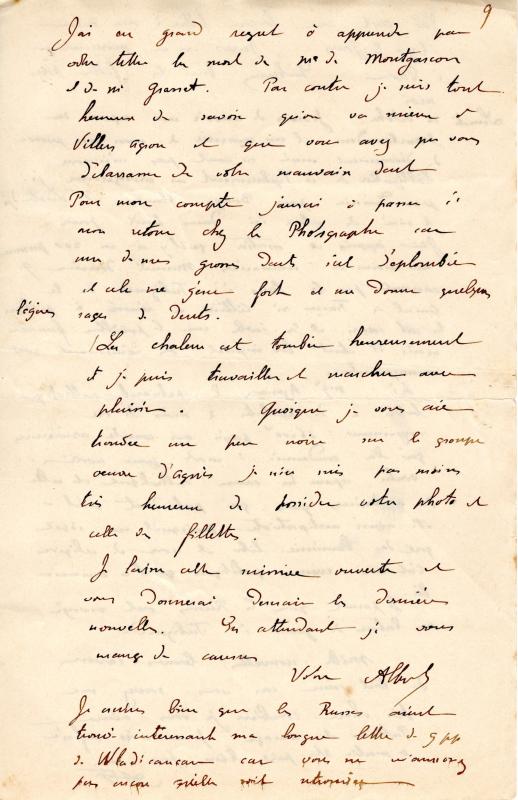 9
J'ai eu grand regret à apprendre par
votre lettre la mort de Mme de Montgascon
et de Mr Grasset. Par contre je suis tout
heureux de savoir qu'on va mieux à
Villers Agron et que vous avez pu vous
débarrasser de votre mauvaise dent
Pour mon compte j'aurai à passer à
mon retour chez le Photographe car
une de mes grosses dents s'est déplombée
et cela me gêne fort et me donne quelques
légères rages de dents.
La chaleur est tombée heureusement
et je puis travailler et marcher avec
plaisir. Quoique je vous aie
trouvée un peu noire sur le groupe
je n'en suis pas moins
très heureux de posséder votre photo et
celle des fillettes.
Je laisse cette missive ouverte et
vous donnerai demain les dernières
nouvelles. En attendant je vous
mange de caresses
Votre Albert
Je crains bien que les Russes aient
trouvé intéressant ma longue lettre de 9 pp
de Wladicaucase car vous ne m'annoncez
pas encore qu'elle soit retrouvée